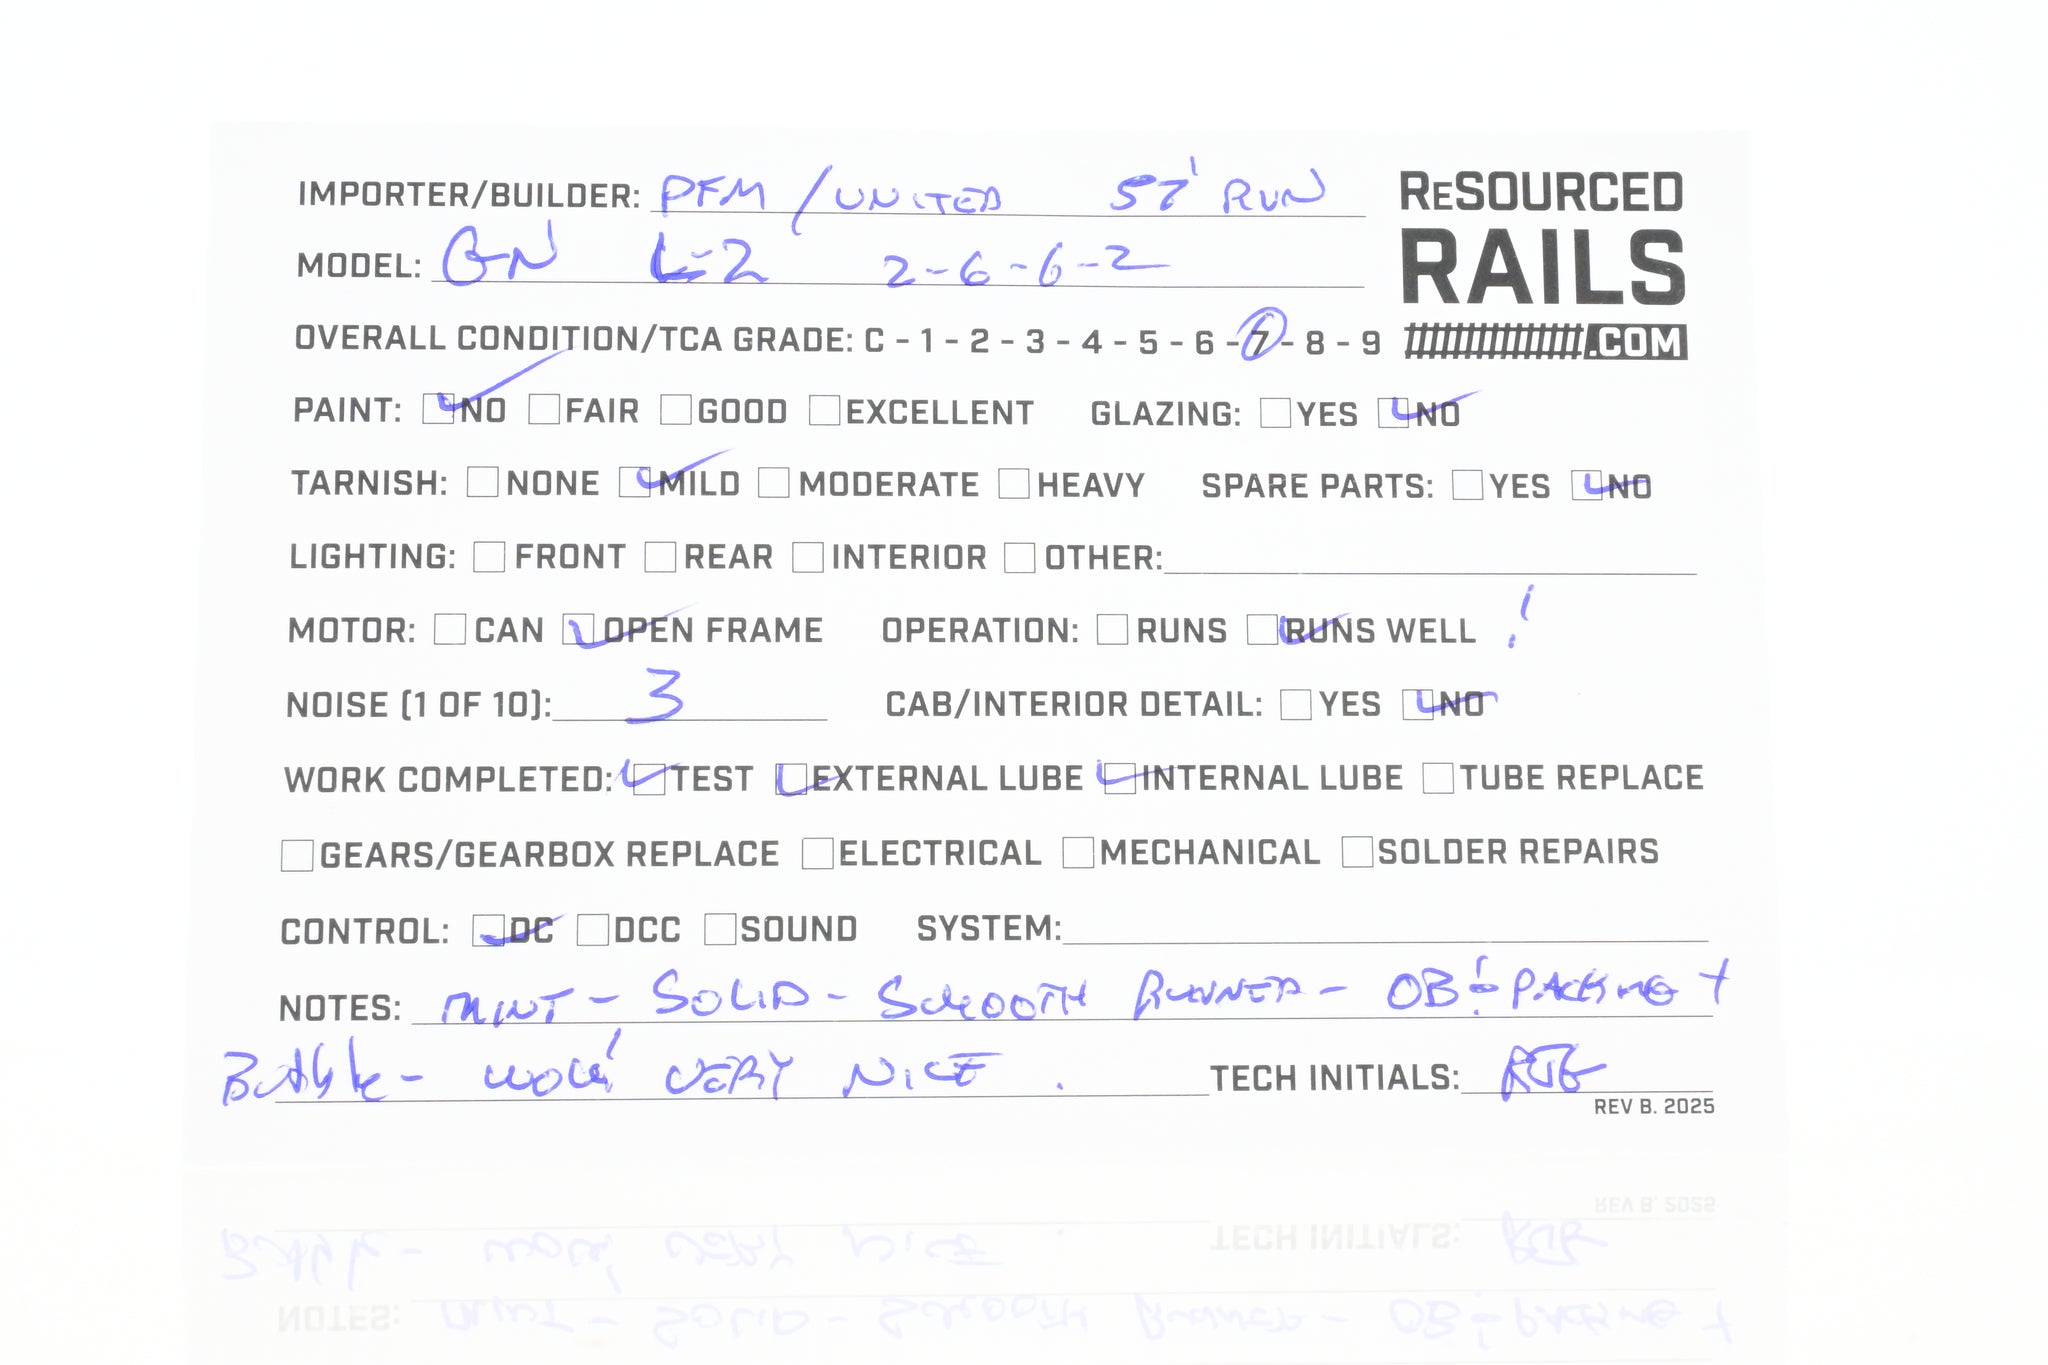 IMPORTER/BUILDER: PFM / UNITED 57' RUN
RESOURCED
RAILS
.COM
MODEL: GN L-2 2-6-6-2
OVERALL CONDITION/TCA GRADE: C - 1 - 2 - 3 - 4 - 5 - 6 - 7 - 8 - 9
PAINT: NO FAIR GOOD EXCELLENT GLAZING: YES NO
TARNISH: NONE MILD MODERATE HEAVY SPARE PARTS: YES NO
LIGHTING: FRONT REAR INTERIOR OTHER:
MOTOR: CAN OPEN FRAME OPERATION: RUNS RUNS WELL !
NOISE (1 OF 10): 3 CAB/INTERIOR DETAIL: YES NO
WORK COMPLETED: TEST EXTERNAL LUBE INTERNAL LUBE TUBE REPLACE
GEARS/GEARBOX REPLACE ELECTRICAL MECHANICAL SOLDER REPAIRS
CONTROL: DC DCC SOUND SYSTEM:
NOTES: MINT - SOLID - SMOOTH RUNNER - OB & PACKING +
- WOW! VERY NICE . TECH INITIALS:
REV B. 2025